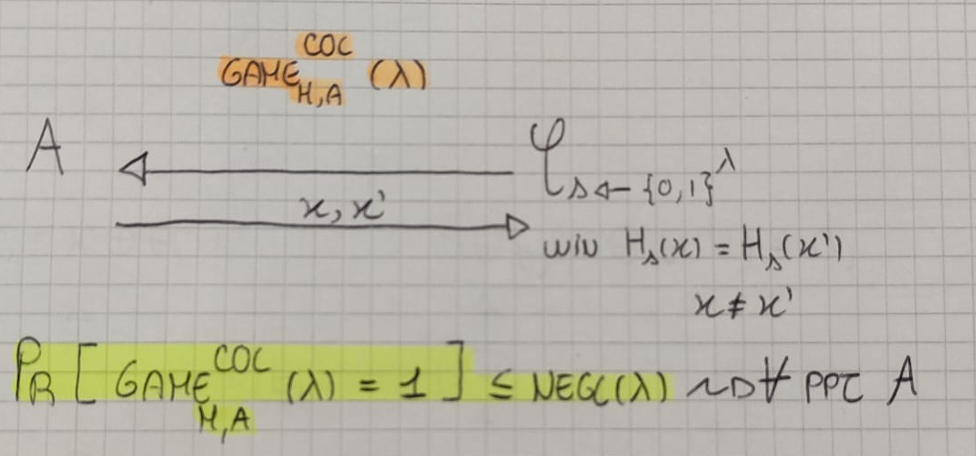 GAME^{COC}_{H,A} (λ)
A C
s ← {0,1}^λ
x, x'
WIN H_s(x) = H_s(x')
x ≠ x'
PR [ GAME^{COC}_{H,A} (λ) = 1 ] ≤ NEGL(λ) ~> ∀ PPT A